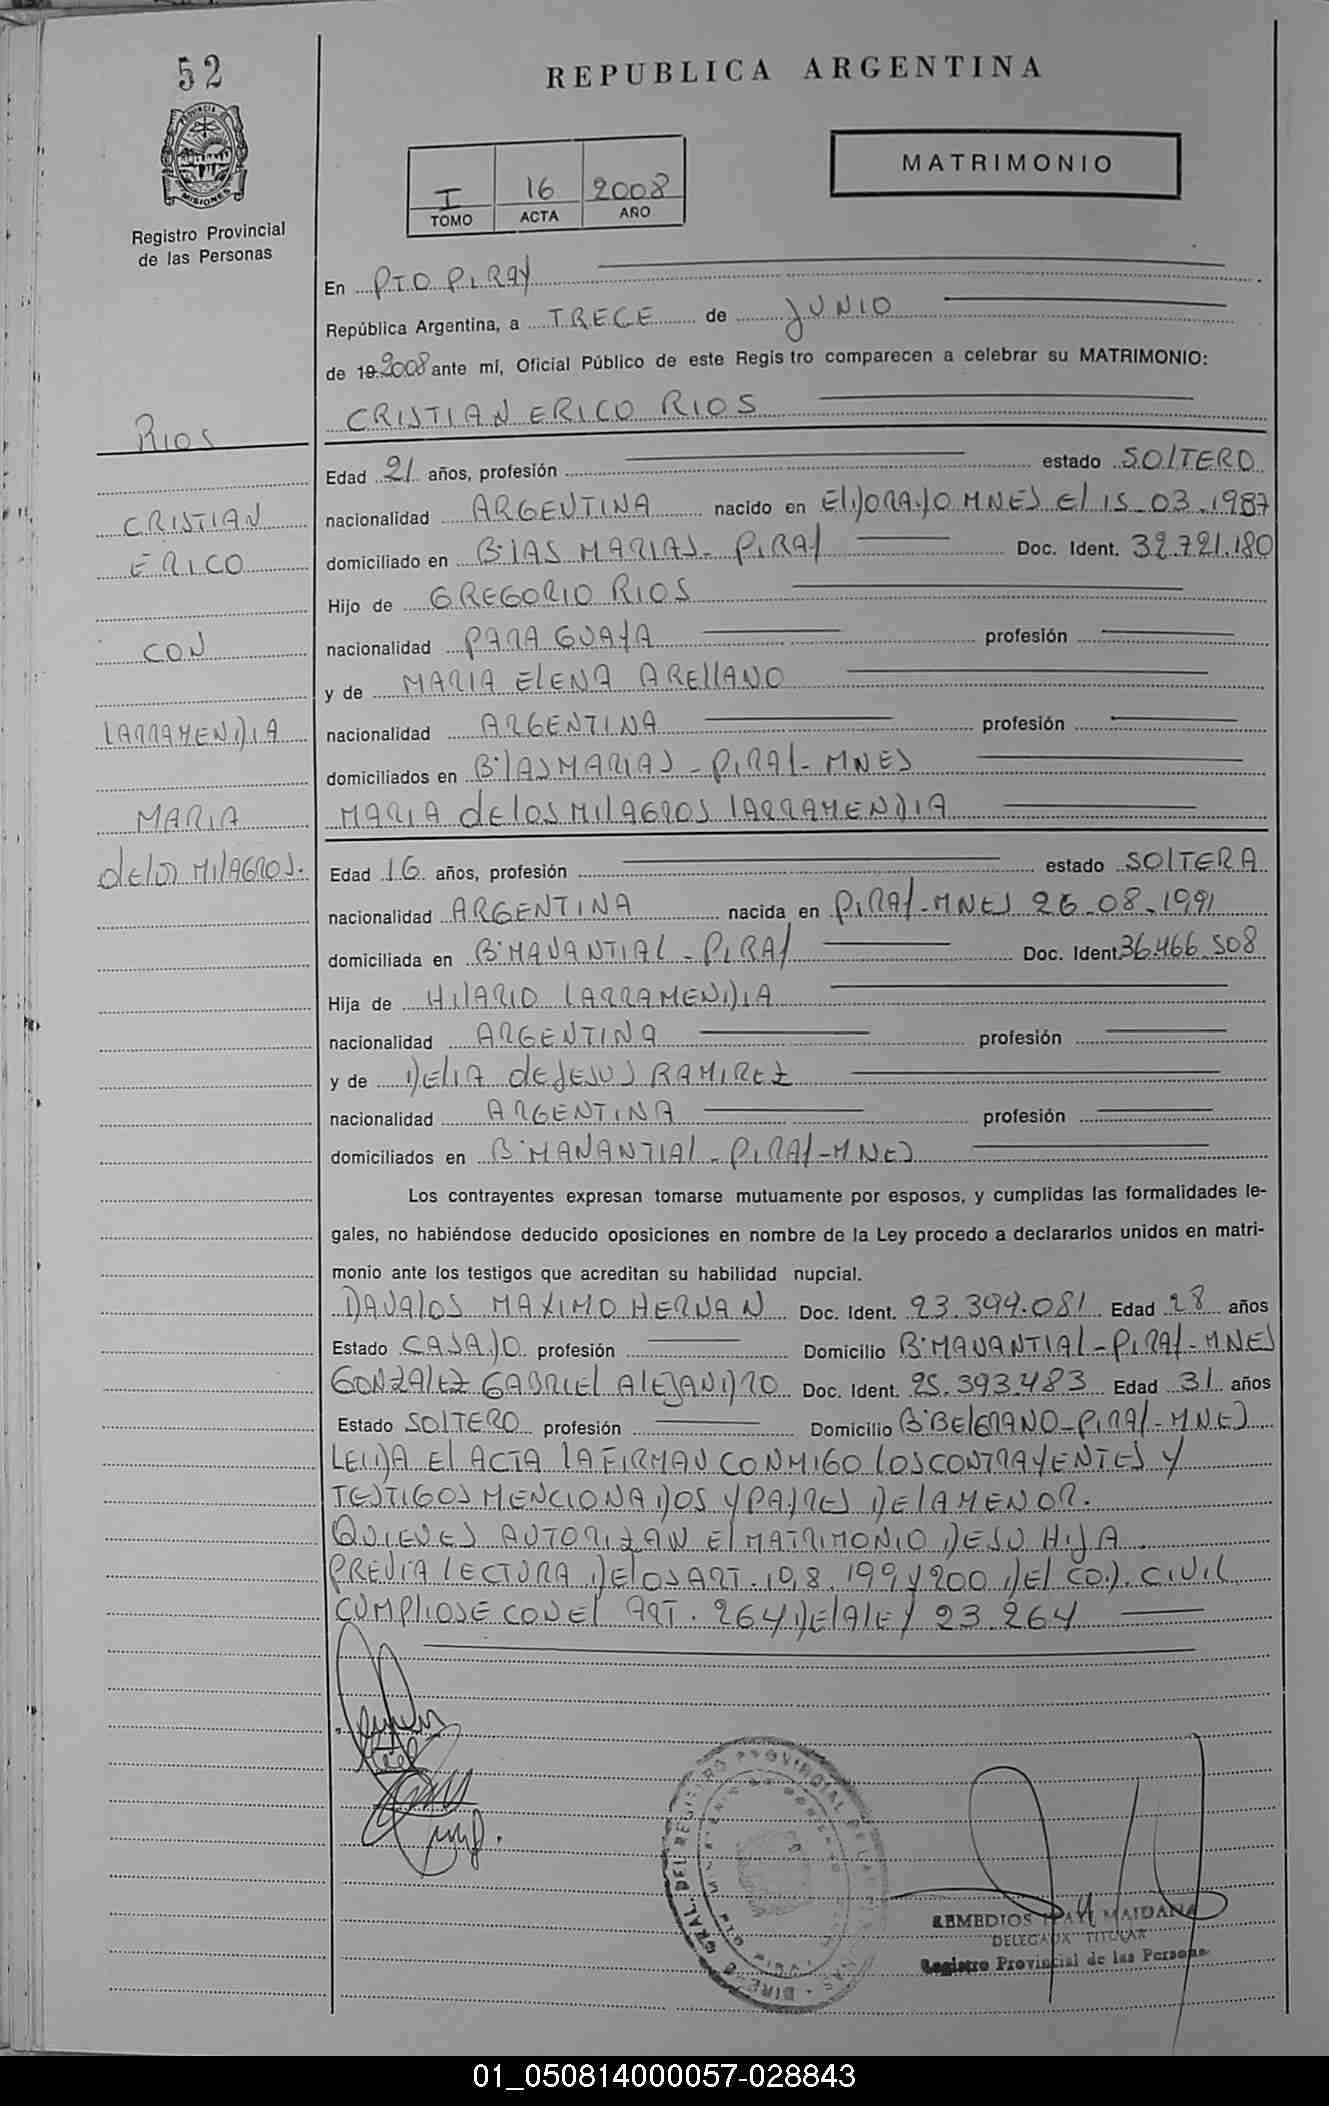 52
REPUBLICA ARGENTINA
PROVINCIA DE
MISIONES
Registro Provincial
de las Personas
MATRIMONIO
I 16 2008
TOMO ACTA AÑO
En PTO PIRAY
República Argentina, a TRECE de JUNIO
de 19 2008 ante mí, Oficial Público de este Registro comparecen a celebrar su MATRIMONIO:
CRISTIAN ERICO RIOS
RIOS
CRISTIAN
ERICO
CON
LARRAMENDIA
MARIA
de los MILAGROS.
Edad 21 años, profesión estado SOLTERO
nacionalidad ARGENTINA nacido en ElDORADO MNES El 15-03-1987
domiciliado en Bº lAS MARIAS - PIRAY Doc. Ident. 32.721.180
Hijo de GREGORIO RIOS
nacionalidad PARAGUAYA profesión
y de MARIA ElENA AREllANO
nacionalidad ARGENTINA profesión
domiciliados en Bº lAS MARIAS - PIRAY - MNES
MARIA de lOS MIlAGROS lARRAMENDIA
Edad 16 años, profesión estado SOlTERA
nacionalidad ARGENTINA nacida en PIRAY - MNES 26-08-1991
domiciliada en Bº MANANTIAL - PIRAY Doc. Ident 36.466.508
Hija de HIlARIO LARRAMENDIA
nacionalidad ARGENTINA profesión
y de DElIA de JESUS RAMIREZ
nacionalidad ARGENTINA profesión
domiciliados en Bº MANANTIAl - PIRAY - MNES
Los contrayentes expresan tomarse mutuamente por esposos, y cumplidas las formalidades le-
gales, no habiéndose deducido oposiciones en nombre de la Ley procedo a declararlos unidos en matri-
monio ante los testigos que acreditan su habilidad nupcial.
DAVAlOS MAXIMO HERNAN Doc. Ident. 23.399.081 Edad 28 años
Estado CASADO profesión Domicilio Bº MANANTIAl - PIRAY - MNES
GONZALEZ GABRIEl AlEJANDRO Doc. Ident. 25.393.483 Edad 31 años
Estado SOLTERO profesión Domicilio Bº BElGRANO - PIRAY - MNES
LEIDA El ACTA lA FIRMAN CONMIGO lOS CONTRAYENTES Y
TESTIGOS MENCIONADOS Y PADRES DE lA MENOR.
QUIENES AUTORIZAN El MATRIMONIO DE SU HIJA
PREVIA LECTURA DE lOS ART. 198, 199 Y 200 DEl COD. CIVIL
CUMPlIOSE CON El ART. 264 DE lA lEY 23.264
REMEDIOS MAIDANA
DELEGADA TITULAR
Registro Provincial de las Personas
01_050814000057-028843